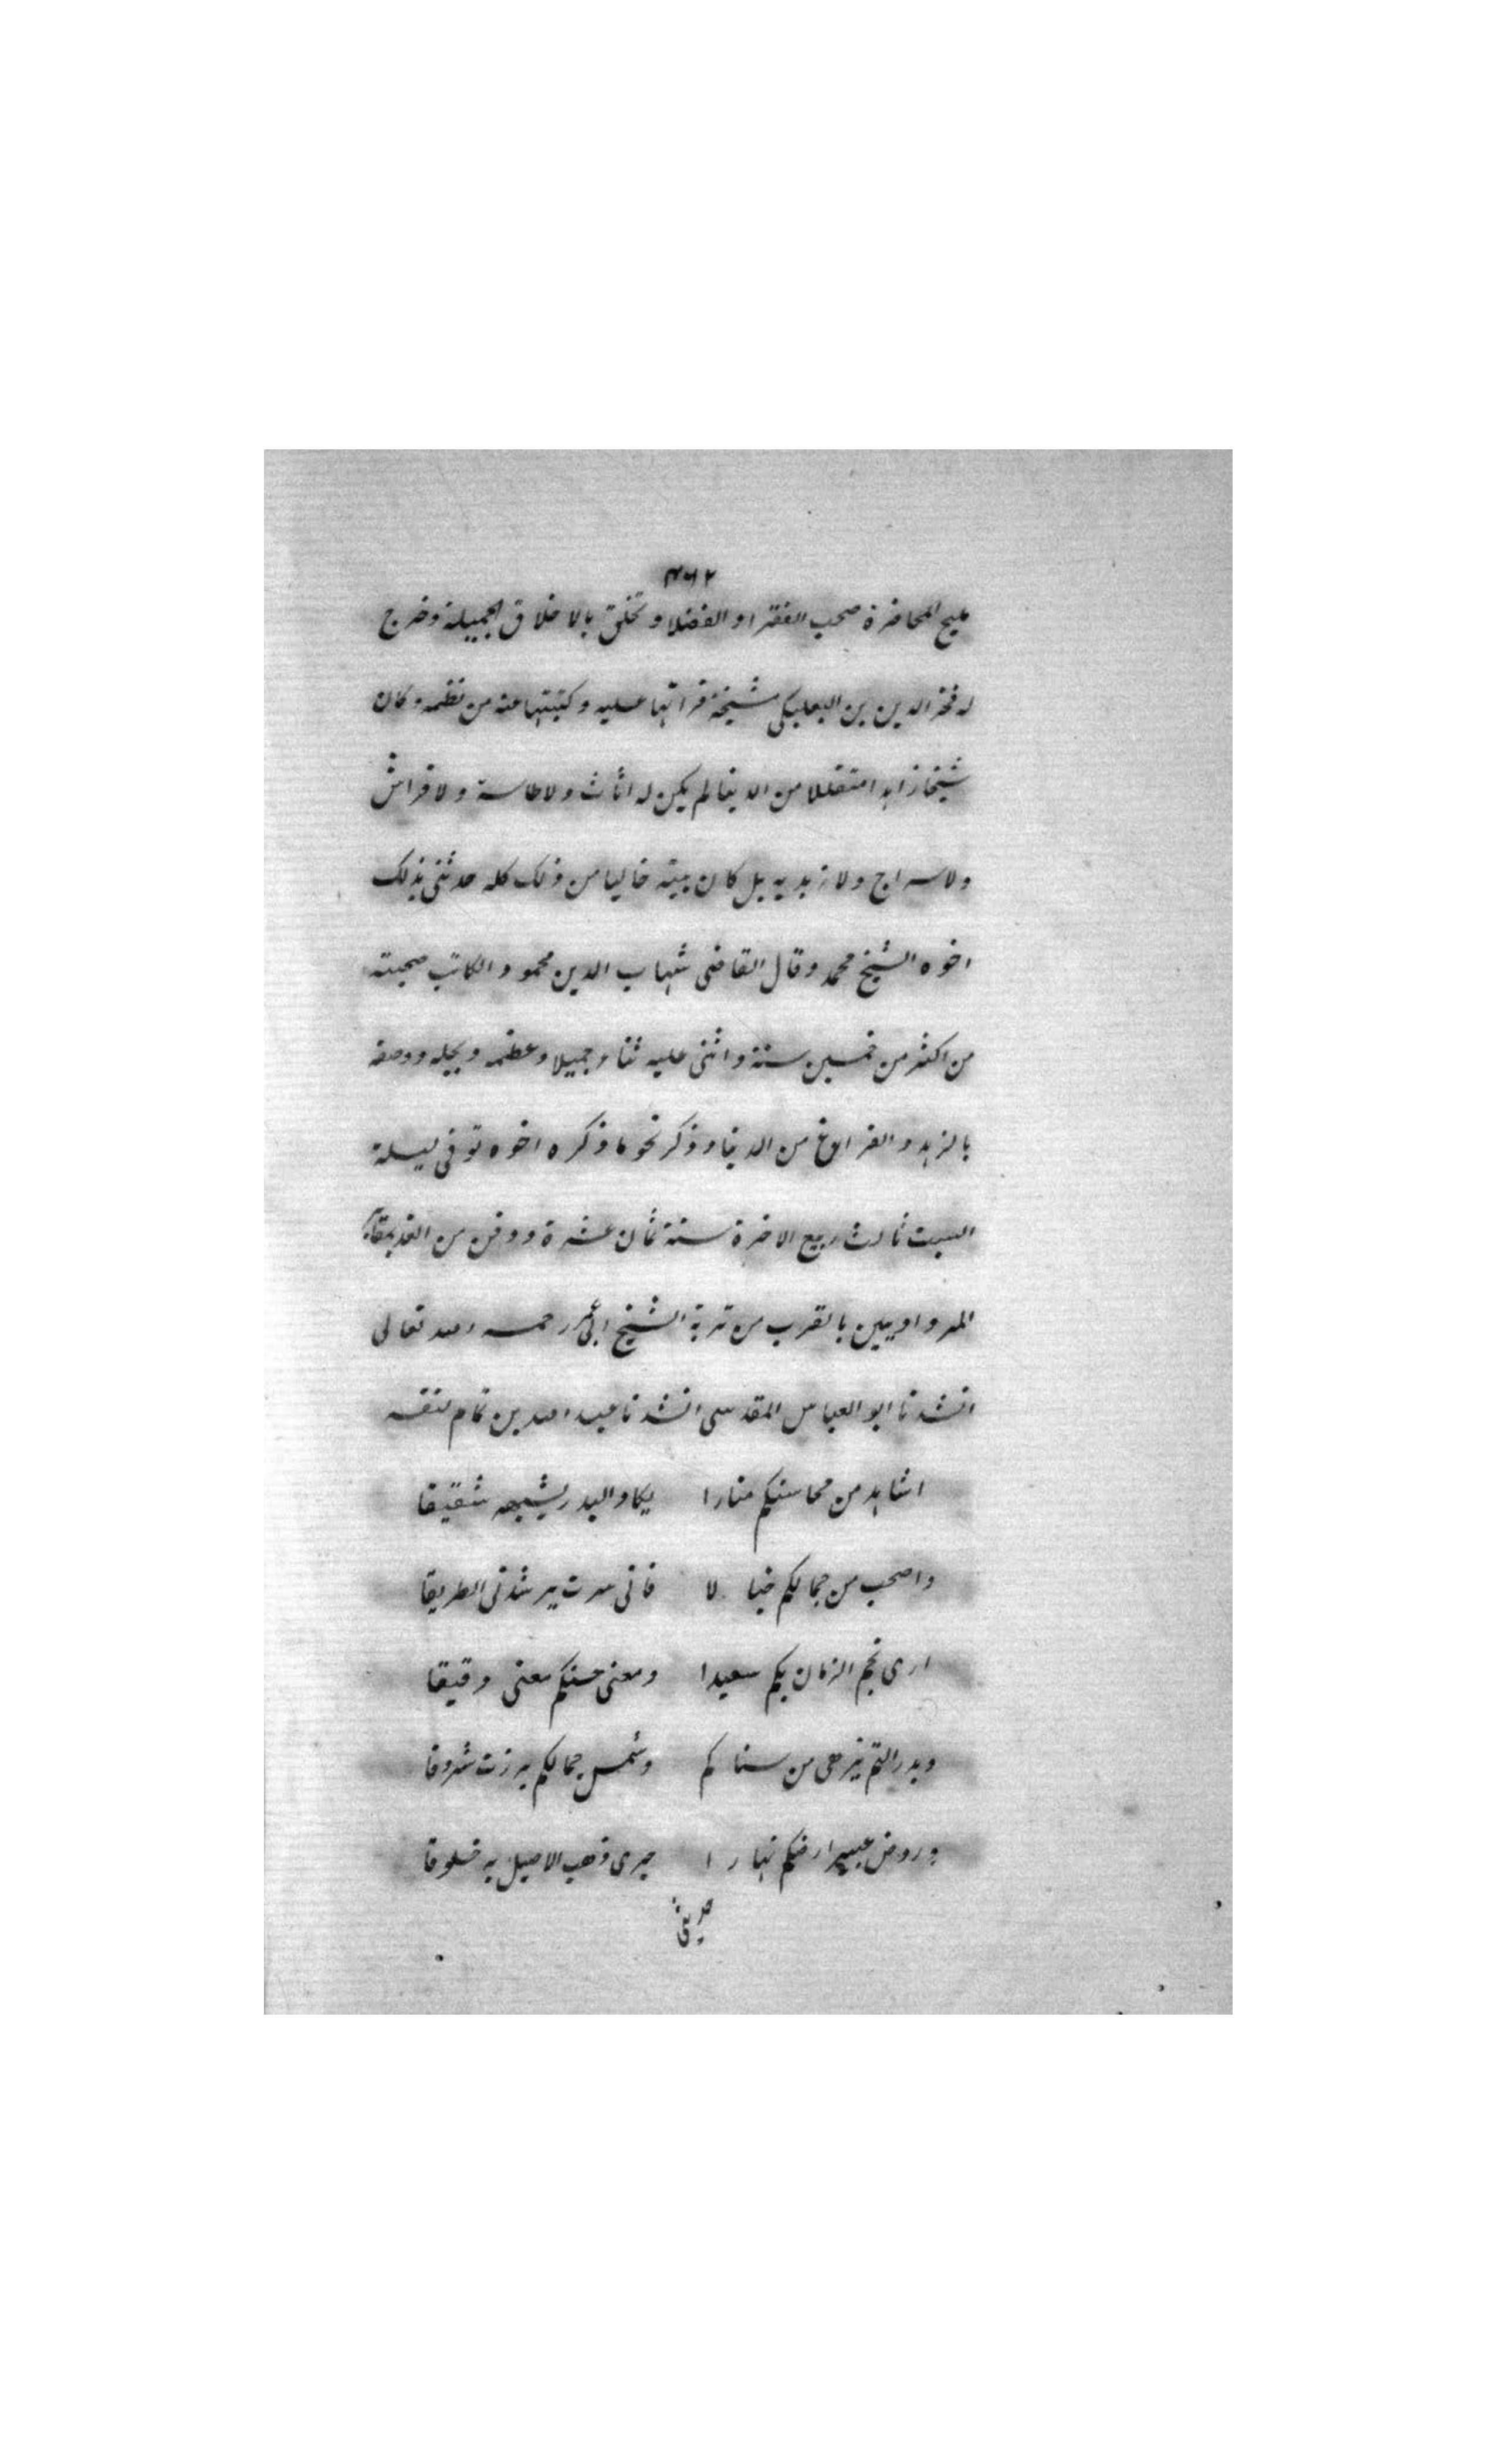 ٣٦٢
مليح المحاضرة صحب الفقرا و الفضلا و تخلق بالاخلاق الجميلة وخرج
له فخر الدين بن البعلبكى شيخة قراتها عليه وكتبتها عنه من نظمه وكان
شيخا زاهدا متقللا من الدنيا لم يكن له اثاث ولا طاسة ولا فراش
ولا سراج ولا زبدية بل كان بيته خاليا من ذلك كله حدثنى بذلك
اخوه الشيخ محمد وقال القاضى شهاب الدين محمود الكاتب صحبته
من اكثر من خمسين سنة واثنى عليه ثناء جميلا وعظمه وبجله ووصفه
بالزهد و الفراغ من الدنيا وذكر نحو ما ذكره اخوه توفى ليلة
السبت ثالث ربيع الاخرة سنة ثمان عشرة ودفن من الغد بمقابر
المرداويين بالقرب من تربة الشيخ ابى عمر رحمه الله تعالى
انشدنا ابو العباس المقدسى انشدنا عبد الله بن تمام لنفسه
اشاهد من محاسنكم منارا يكاد البدر يشبهه شقيقا
واصحب من جمالكم خيالا فانى سرت يرشدنى الطريقا
ارى نجم الزمان بكم سعيدا ومعنى حسنكم معنى دقيقا
وبدر التم يزهى من سناكم وشمس جمالكم برزت شروقا
وروض عبير ارضكم نهارا جرى ذهب الاصيل به خلوقا